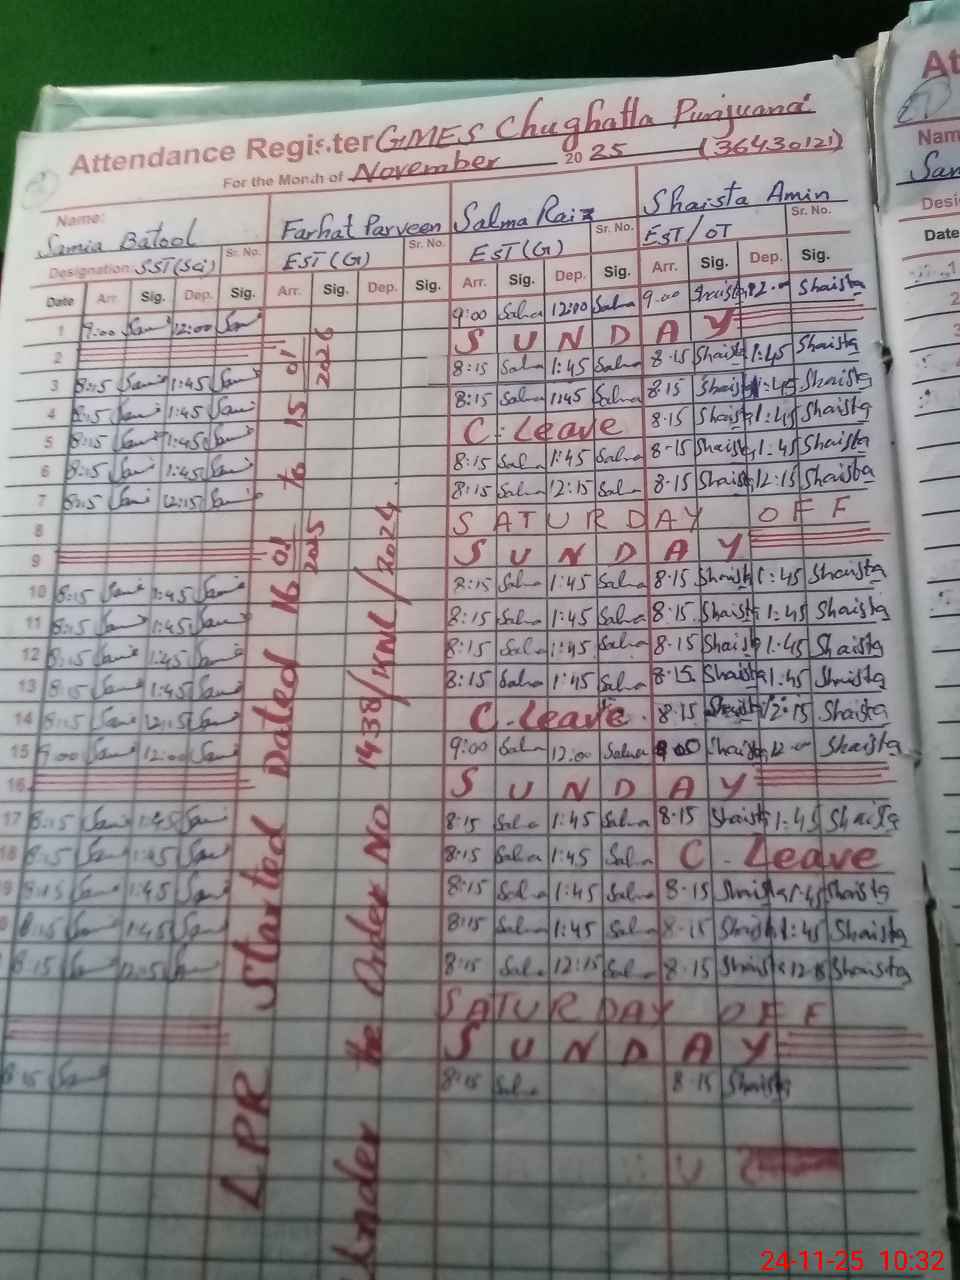 Attendance Register GMES Chughatta Punjuana
For the Month of November 2025 (36430121)
Name: Samia Batool Farhat Parveen Salma Raiz Shaista Amin
Sr. No. Sr. No. Sr. No. Sr. No.
Designation: SST(Sci) EST(G) EST(G) EST/OT
Date Arr. Sig. Dep. Sig. Arr. Sig. Dep. Sig. Arr. Sig. Dep. Sig. Arr. Sig. Dep. Sig.
1 9:00 Sami 12:00 Sami 9:00 Salma 12:00 Salma 9:00 Shaista 12:00 Shaista
2 SUNDAY
3 8:15 Sami 1:45 Sami 8:15 Salma 1:45 Salma 8:15 Shaista 1:45 Shaista
4 8:15 Sami 1:45 Sami 8:15 Salma 1:45 Salma 8:15 Shaista 1:45 Shaista
5 8:15 Sami 1:45 Sami C. Leave 8:15 Shaista 1:45 Shaista
6 8:15 Sami 1:45 Sami 8:15 Salma 1:45 Salma 8-15 Shaista 1:45 Shaista
7 8:15 Sami 12:15 Sami 8:15 Salma 12:15 Salma 8.15 Shaista 12:15 Shaista
8 SATURDAY OFF
9 SUNDAY
10 8:15 Sami 1:45 Sami 8:15 Salma 1:45 Salma 8.15 Shaista 1:45 Shaista
11 8:15 Sami 1:45 Sami 8:15 Salma 1:45 Salma 8.15 Shaista 1:45 Shaista
12 8:15 Sami 1:45 Sami 8:15 Salma 1:45 Salma 8.15 Shaista 1:45 Shaista
13 8:15 Sami 1:45 Sami 8:15 Salma 1:45 Salma 8.15 Shaista 1:45 Shaista
14 8:15 Sami 12:15 Sami C. Leave 8.15 Shaista 12:15 Shaista
15 9:00 Sami 12:00 Sami 9:00 Salma 12:00 Salma 9:00 Shaista 12:00 Shaista
16 SUNDAY
17 8:15 Sami 1:45 Sami 8:15 Salma 1:45 Salma 8.15 Shaista 1:45 Shaista
18 8:15 Sami 1:45 Sami 8:15 Salma 1:45 Salma C. Leave
9 8:15 Sami 1:45 Sami 8:15 Salma 1:45 Salma 8.15 Shaista 1:45 Shaista
8:15 Sami 1:45 Sami 8:15 Salma 1:45 Salma 8.15 Shaista 1:45 Shaista
8:15 Sami 12:15 8:15 Salma 12:15 Salma 8.15 Shaista 12:15 Shaista
SATURDAY OFF
SUNDAY
8:15 Sami 8:15 Salma 8.15 Shaista
LPR Started Dated 16/01/2025 to 15/01/2026
Under the Order NO 1438/KNL/2024
Att
Nam
San
Desi
Date
24-11-25 10:32